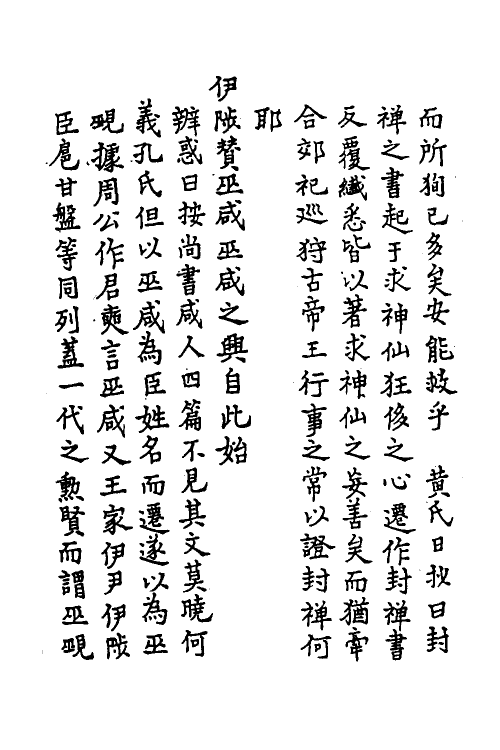 而所狥已多矣安能救乎　黄氏日抄曰封
禅之書起于求神仙狂侈之心遷作封禅書
反覆纎悉皆以著求神仙之妄善矣而猶牽
合郊祀廵狩古帝王行事之常以證封禅何
耶
伊陟賛巫咸巫咸之興自此始
辨惑曰按尚書咸人四篇不見其文莫曉何
義孔氏但以巫咸為臣姓名而遷遂以為巫
覡據周公作君奭言巫咸乂王家伊尹伊陟
臣扈甘盤等同列蓋一代之勲賢而謂巫覡